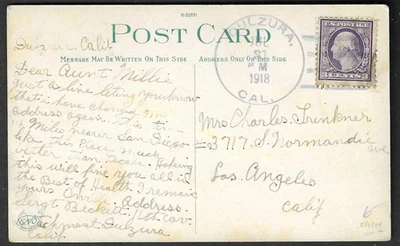 POST CARD
MESSAGE MAY BE WRITTEN ON THIS SIDE
ADDRESS ONLY ON THIS SIDE
Dulzura Calif
Dear Aunt Millie
Just a line letting you know
that i have changed my
address again. This time
Miles nearer San Diego
like this Place much
better than Hoping
this will find you all in
the Best of Health I remain
yours Address.
Sergt Beckett. Cav.
Dulzura
Calif.
DULZURA,
21
PM
1918
CAL.
3 CENTS 3
Mrs Charles Trinkner
#3717 S. Normandie
Ave
Los Angeles
Calif